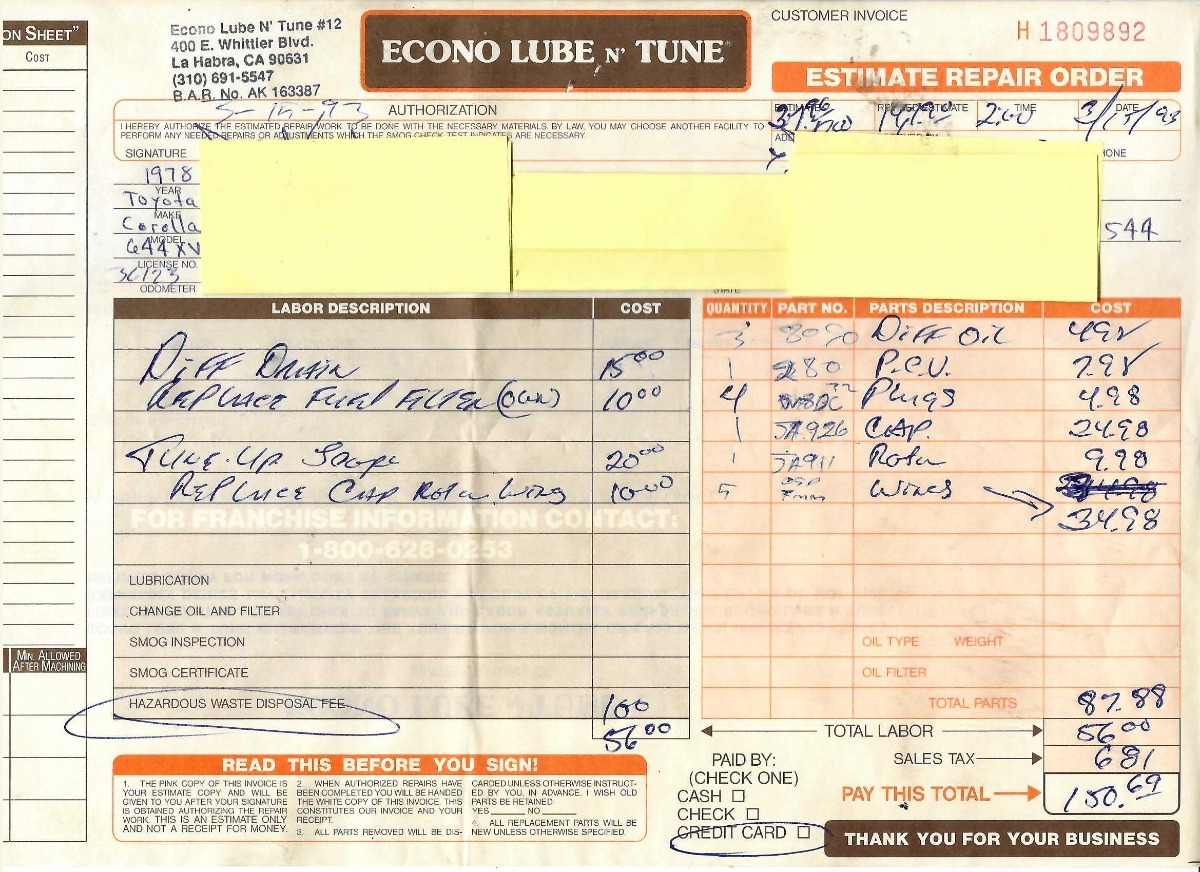 ON SHEET"
COST
Econo Lube N' Tune #12
400 E. Whittier Blvd.
La Habra, CA 90631
(310) 691-5547
B.A.R. No. AK 163387
ECONO LUBE N' TUNE
CUSTOMER INVOICE
H 1809892
ESTIMATE REPAIR ORDER
AUTHORIZATION
I HEREBY AUTHORIZE THE ESTIMATED REPAIR WORK TO BE DONE WITH THE NECESSARY MATERIALS BY LAW, YOU MAY CHOOSE ANOTHER FACILITY TO
PERFORM ANY NEEDED REPAIRS OR ADJUSTMENTS WHICH THE SMOG CHECK TEST INDICATES ARE NECESSARY.
ESTIMATE REVISED ESTIMATE TIME DATE
2:00
SIGNATURE
HONE
1978
YEAR
Toyota
MAKE
Corolla
MODEL
644 XV
544
LICENSE NO.
36123
ODOMETER
STATE
LABOR DESCRIPTION COST
Diff Drain 15 00
Replace Fuel Filter (our) 10 00
Tune-Up 20 00
Replace Cap Rotor Wires 10 00
FOR FRANCHISE INFORMATION CONTACT:
1-800-628-0253
LUBRICATION
CHANGE OIL AND FILTER
SMOG INSPECTION
SMOG CERTIFICATE
HAZARDOUS WASTE DISPOSAL FEE 1 00
56 00
QUANTITY PART NO. PARTS DESCRIPTION COST
3 8090 Diff Oil 4 98
1 280 P.C.V. 7.98
4 Plugs 4.98
1 JA926 CAP. 24.98
1 JA911 Rotor 9.98
5 7mm Wires
34.98
OIL TYPE WEIGHT
OIL FILTER
TOTAL PARTS 87.88
TOTAL LABOR 56 00
SALES TAX 6 81
PAY THIS TOTAL 150.69
PAID BY:
(CHECK ONE)
CASH
CHECK
CREDIT CARD
THANK YOU FOR YOUR BUSINESS
MIN. ALLOWED
AFTER MACHINING
READ THIS BEFORE YOU SIGN!
1. THE PINK COPY OF THIS INVOICE IS
YOUR ESTIMATE COPY AND WILL BE
GIVEN TO YOU AFTER YOUR SIGNATURE
IS OBTAINED AUTHORIZING THE REPAIR
WORK. THIS IS AN ESTIMATE ONLY
AND NOT A RECEIPT FOR MONEY.
2. WHEN AUTHORIZED REPAIRS HAVE
BEEN COMPLETED YOU WILL BE HANDED
THE WHITE COPY OF THIS INVOICE. THIS
CONSTITUTES OUR INVOICE AND YOUR
RECEIPT.
3. ALL PARTS REMOVED WILL BE DIS-
CARDED UNLESS OTHERWISE INSTRUCT-
ED BY YOU, IN ADVANCE. I WISH OLD
PARTS BE RETAINED
YES NO
4. ALL REPLACEMENT PARTS WILL BE
NEW UNLESS OTHERWISE SPECIFIED.